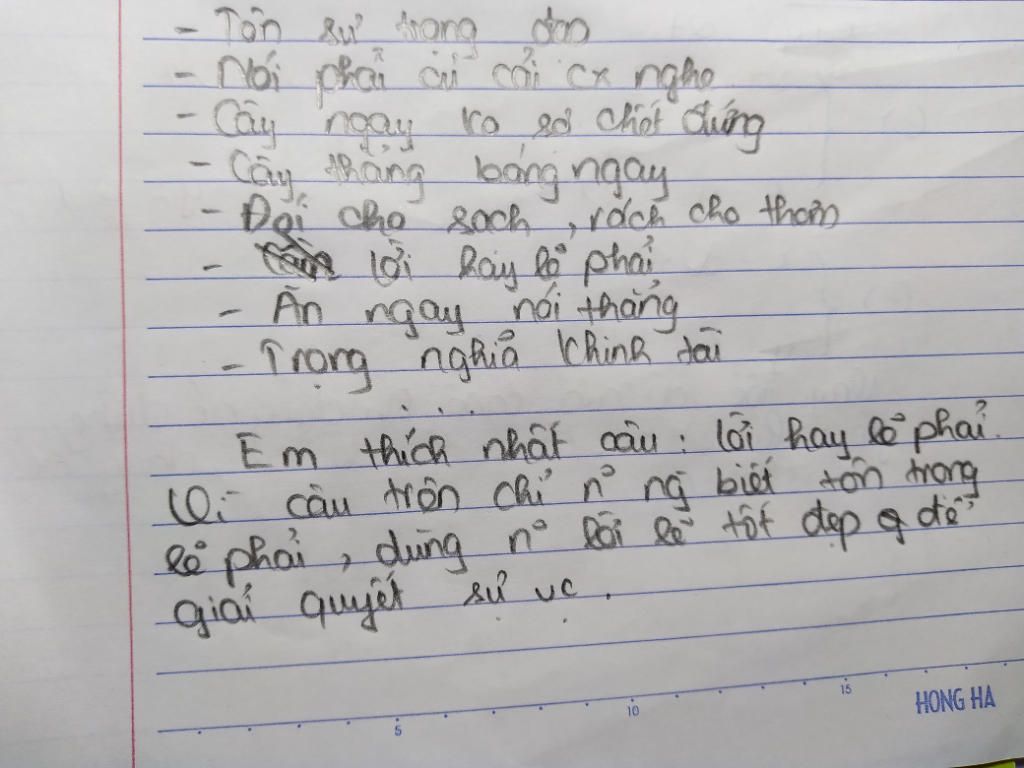 - Tôn sư trọng đạo
- Nói phải củ cải cx nghe
- Cây ngay ko sợ chết đứng
- Cây thẳng bóng ngay
- Đói cho sạch, rách cho thơm
- lời hay lẽ phải
- Ăn ngay nói thẳng
- Trọng nghĩa khinh tài
. . .
Em thích nhất câu: lời hay lẽ phải.
Vì câu trên chỉ n~ ng biết tôn trọng
lẽ phải, dùng n~ lời lẽ tốt đẹp để
giải quyết sự vc.
5 10 15
HONG HA